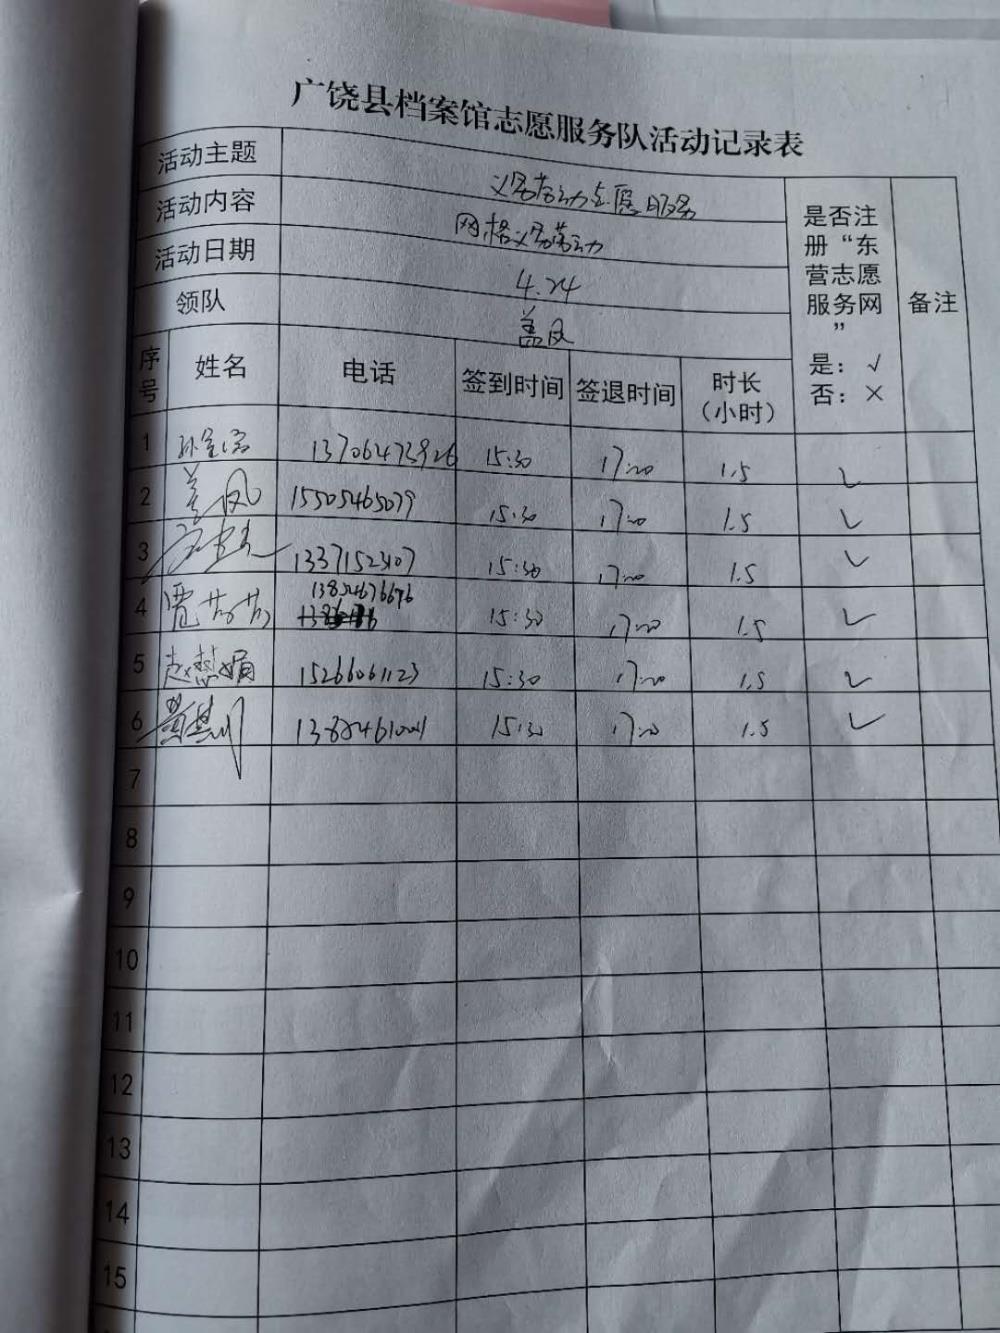 广饶县档案馆志愿服务队活动记录表
活动主题 义务劳动志愿服务
活动内容 网格义务劳动
活动日期 4.24
领队 盖凤
是否注册“东营志愿服务网”
是：√
否：×
备注
序号 姓名 电话 签到时间 签退时间 时长（小时）
1 13706473926 15:30 17:00 1.5 ✓
2 盖凤 15505465079 15:30 17:00 1.5 ✓
3 13371523107 15:30 17:00 1.5 ✓
4 贾芳芳 13854676676 15:30 17:00 1.5 ✓
5 赵慧娟 15266061123 15:30 17:00 1.5 ✓
6 15:30 17:00 1.5 ✓
7
8
9
10
11
12
13
14
15